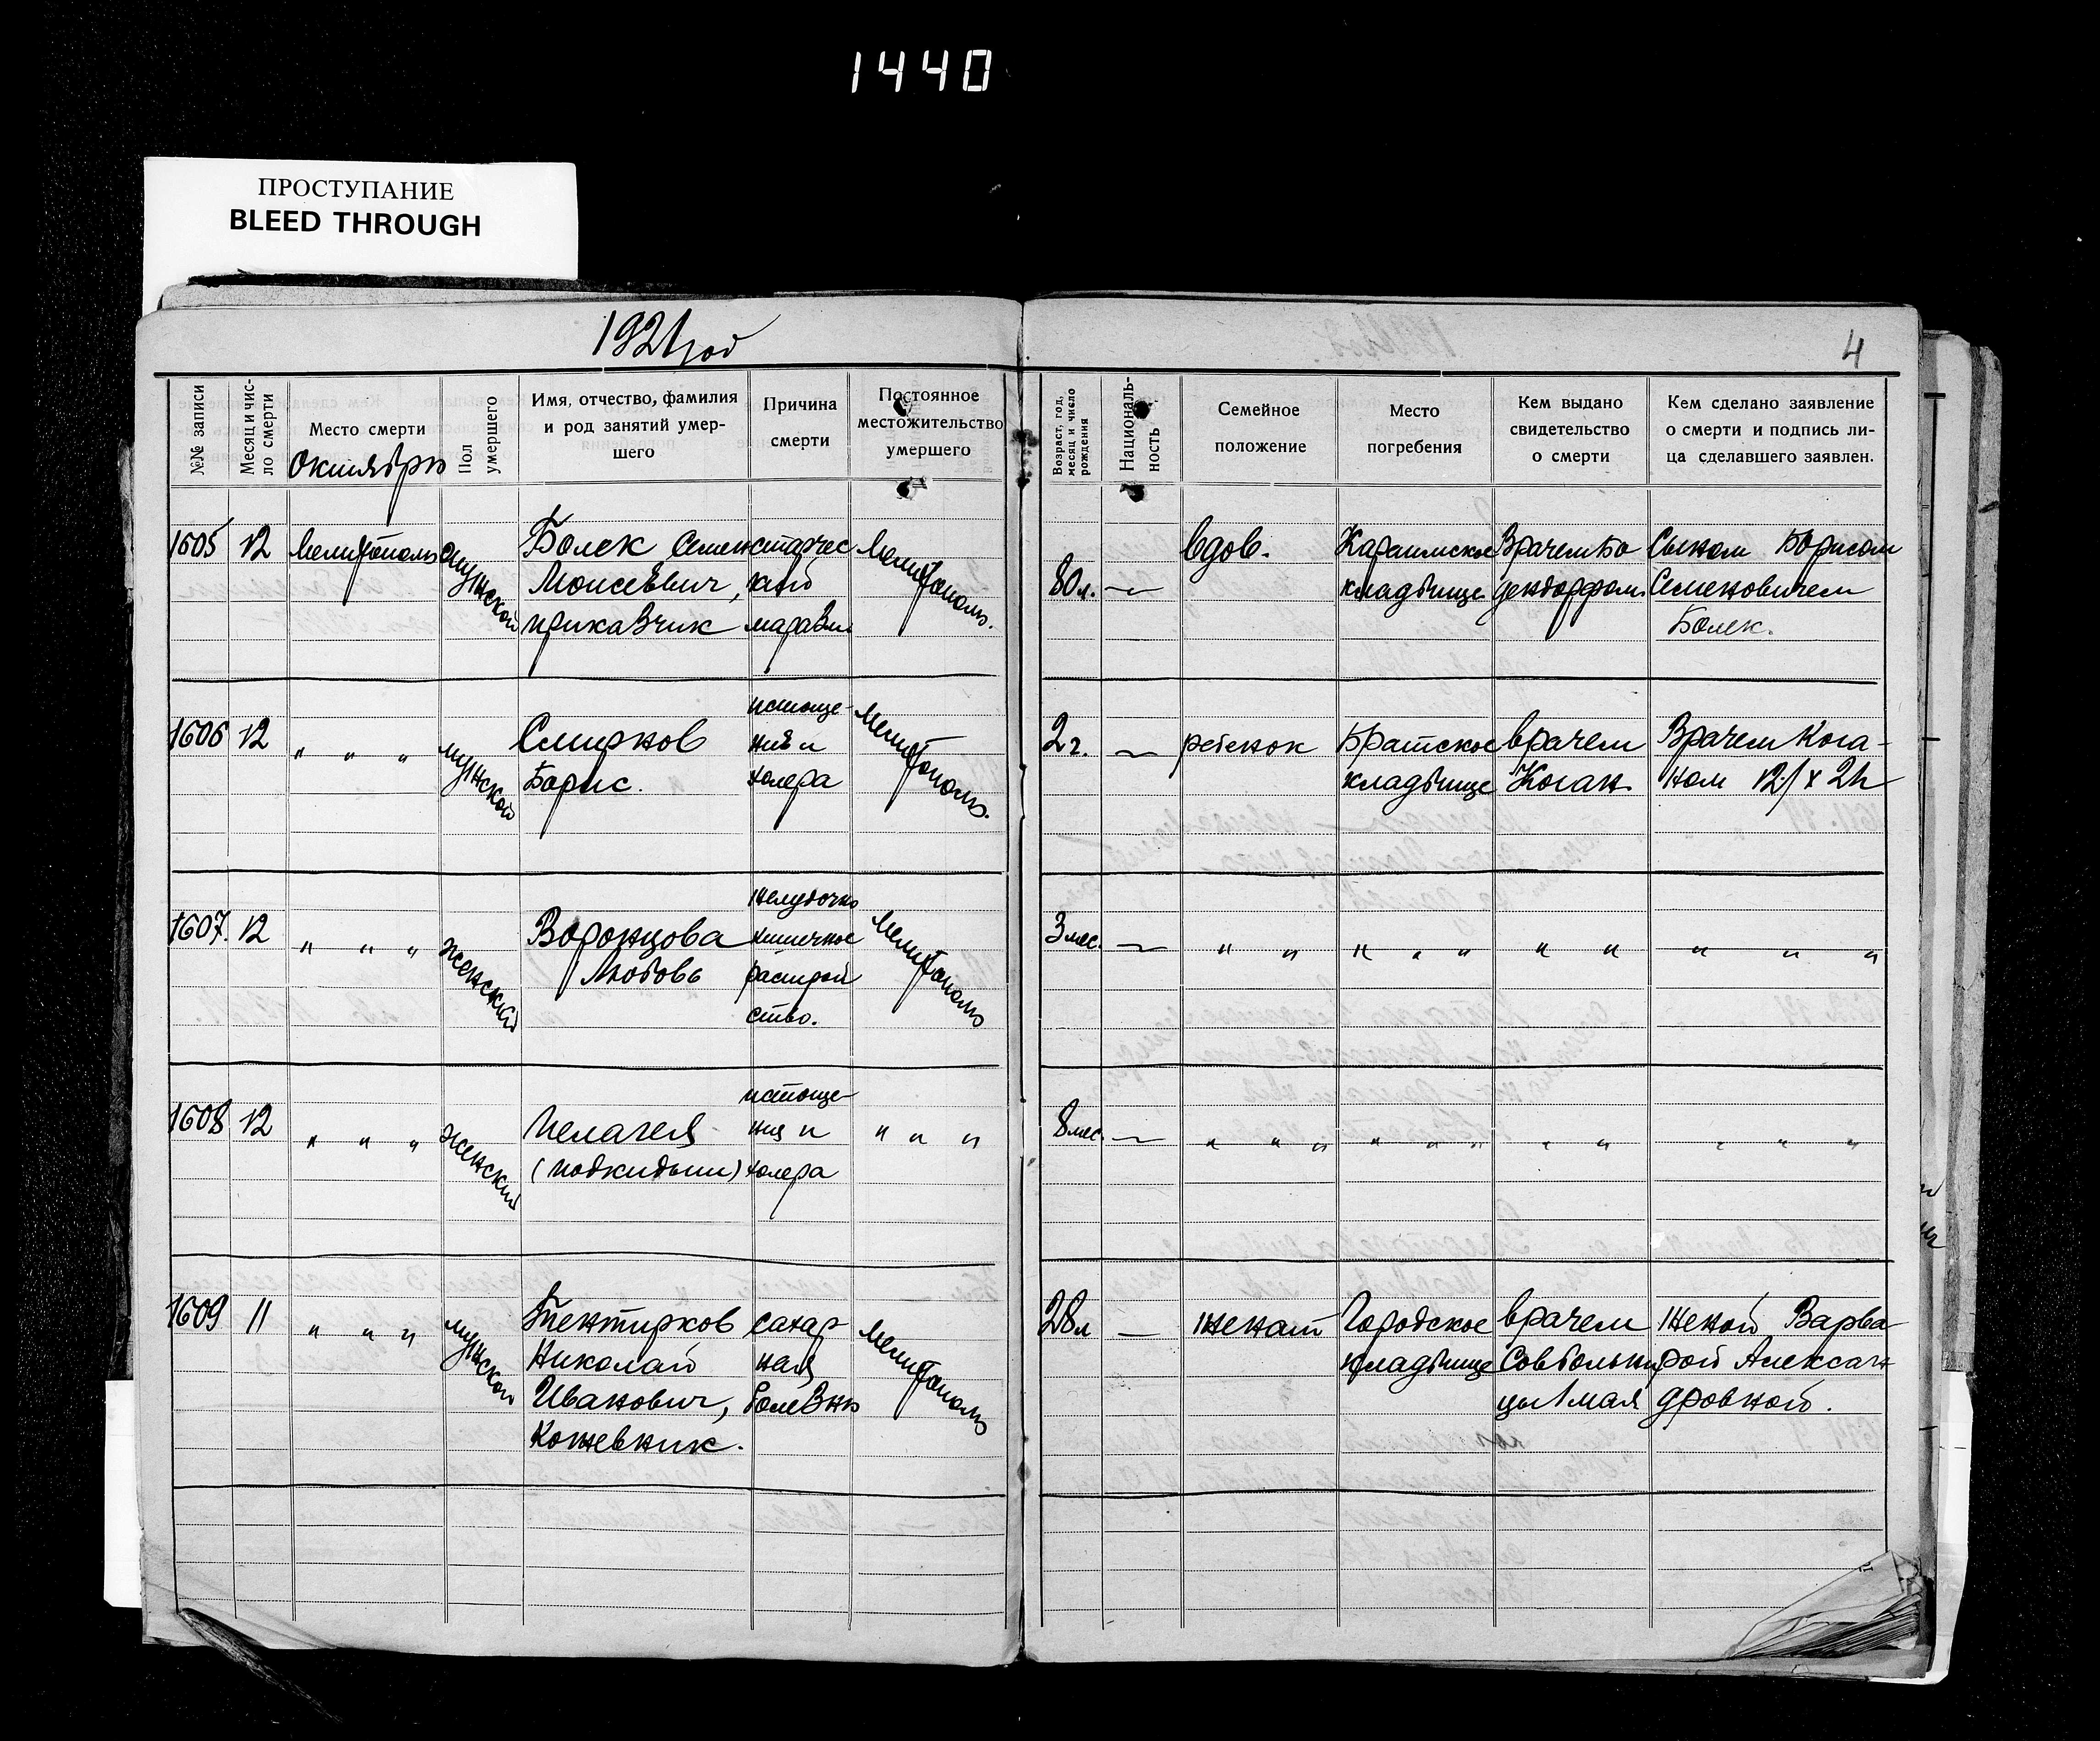 1440
ПРОСТУПАНИЕ
BLEED THROUGH
1921 год
4
№№ записи
Месяц и число смерти
Место смерти
Октябрь
Пол умершего
Имя, отчество, фамилия
и род занятий умер-
шего
Причина
смерти
Постоянное
местожительство
умершего
Возраст, год,
месяц и число
рождения
Националь-
ность
Семейное
положение
Место
погребения
Кем выдано
свидетельство
о смерти
Кем сделано заявление
о смерти и подпись ли-
ца сделавшего заявлен.
1605 12 Мелитополь мужской
Болек Семен
Моисеевич,
приказчик
старчес
кий
маразм
Мелитополь.
80 л. —
вдов.
Караимское
кладбище
Врачем Бо
дендорфом.
Сыном Борисом
Семеновичем
Болек.
1606 12 " " " мужской
Смирнов
Борис.
истоще-
ния и
холера
Мелитополь.
2 г. —
ребенок
Братское
кладбище
врачем
Коган
Врачем Кога-
ном 12/X 21
1607. 12 " " " женский
Воронцова
Любовь
желудочно
кишечное
растрой
ство.
Мелитополь
3 мес. —
" " " " " " " " " "
1608 12 " " " женский
Пелагея
(подкидыш)
истоще-
ния и
холера
" " "
8 мес. —
" " " " " " " " " " "
1609 11 " " " мужской
Николай
Иванович,
Кожевник.
сахар
ная
болезнь
Мелитополь
28 л —
женат
Городское
кладбище
врачем
Совбольни
цы 1 мая
Женой Варва
рой Алексан
дровной.